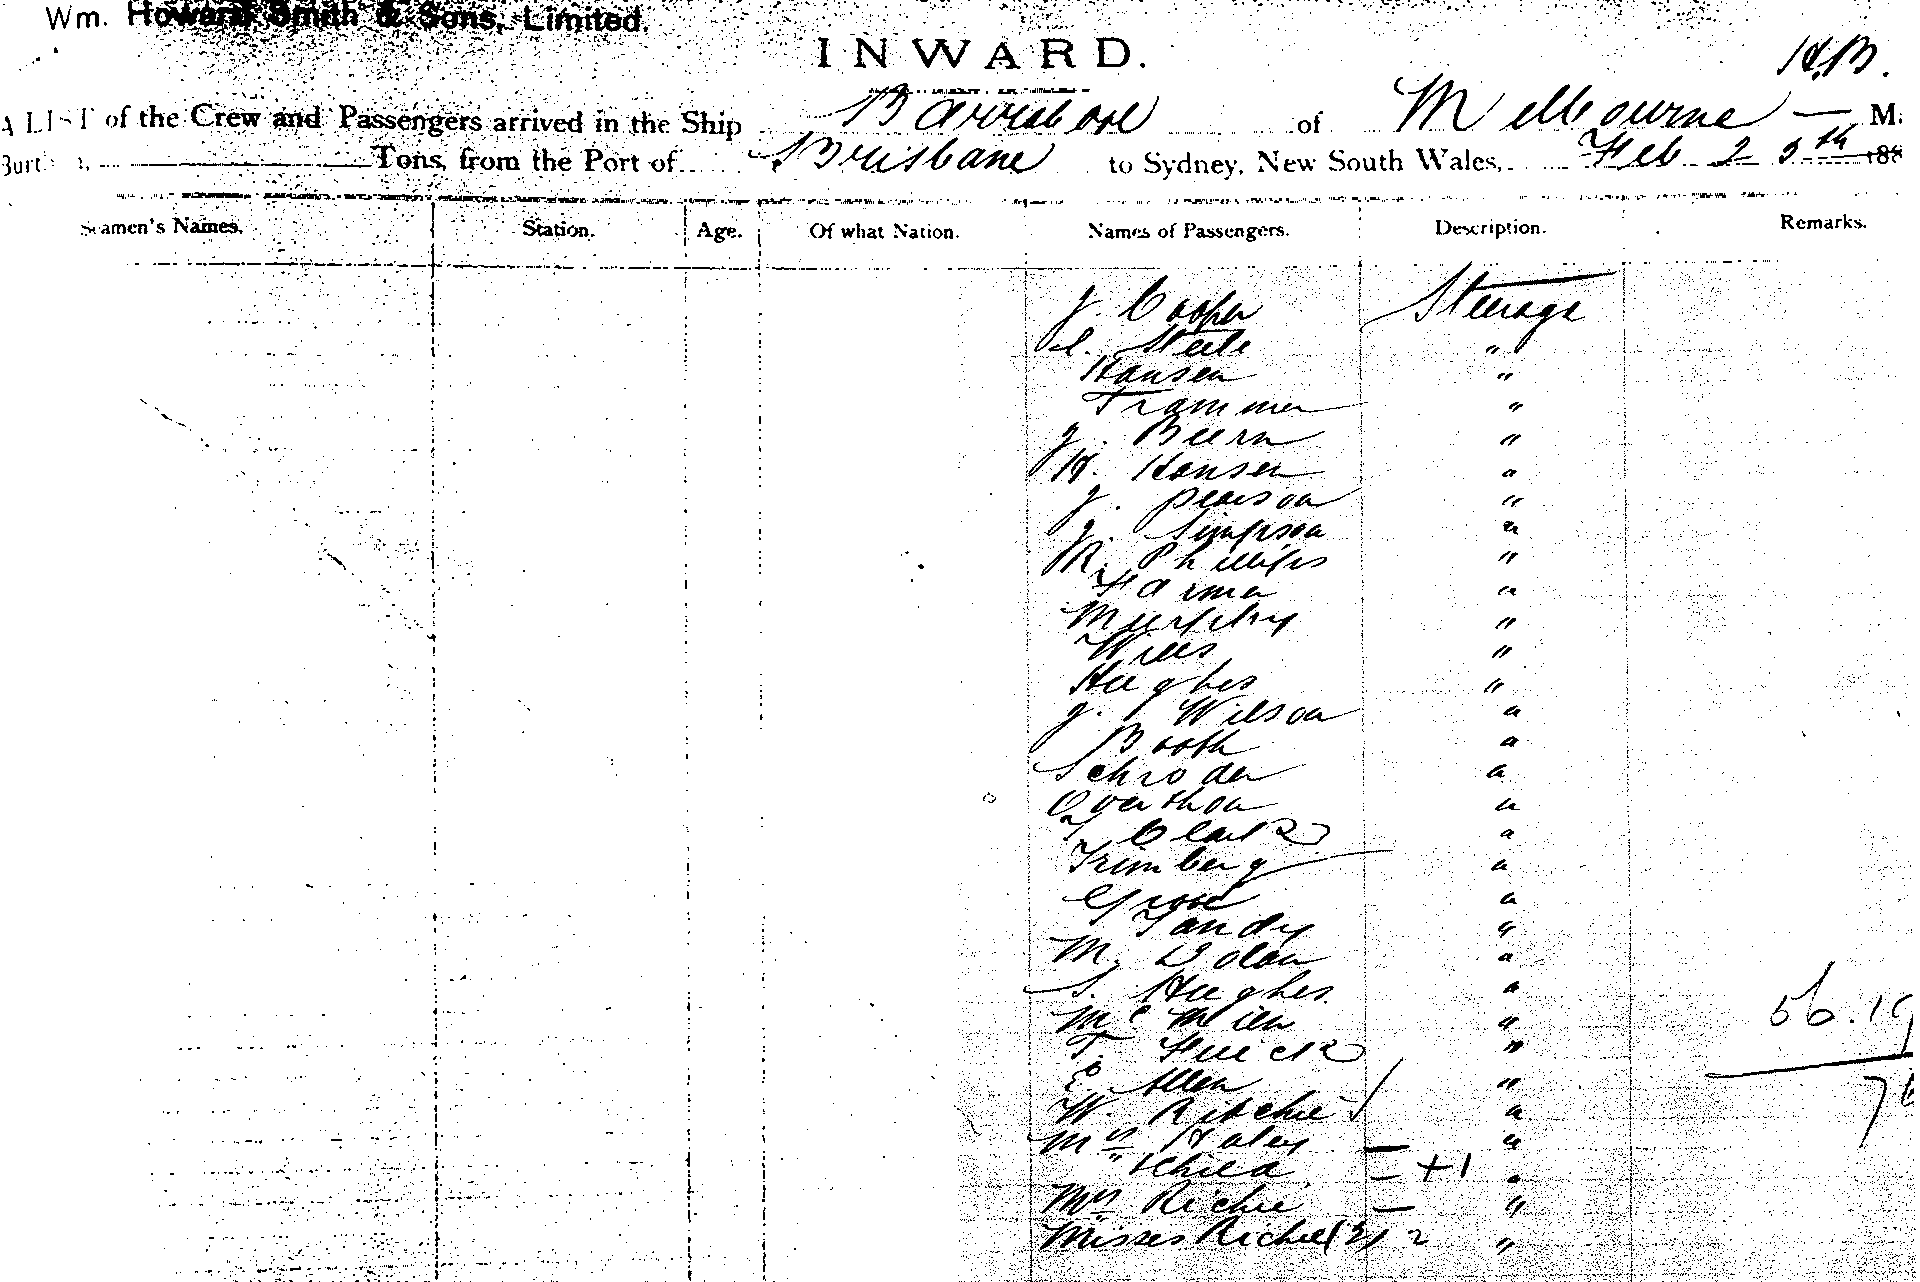 Wm. Howard Smith & Sons, Limited.
INWARD.
H.B.
A LIST of the Crew and Passengers arrived in the Ship Barrabool of Melbourne — M.
Burt , Tons, from the Port of Brisbane to Sydney, New South Wales, Feb 25th 188
Seamen's Names. Station. Age. Of what Nation. Names of Passengers. Description. Remarks.
J. Cooper Steerage
Steele "
Hansen "
Trammer "
J. "
H. Hansen "
J. Pearson "
J. Simpson "
R. Phillips "
Farmer "
Murphy "
Wills "
Hughes "
J. Wilson "
Booth "
Schroder "
"
T Clark "
"
Grove "
Tandy "
M. Dolan "
S. Hughes "
Mc "
T. "
E. Allen "
W. Ritchie "
Mrs Haley "
" child +1 "
Mrs Richie "
Misses Richie (2) 2 "
56.19
76